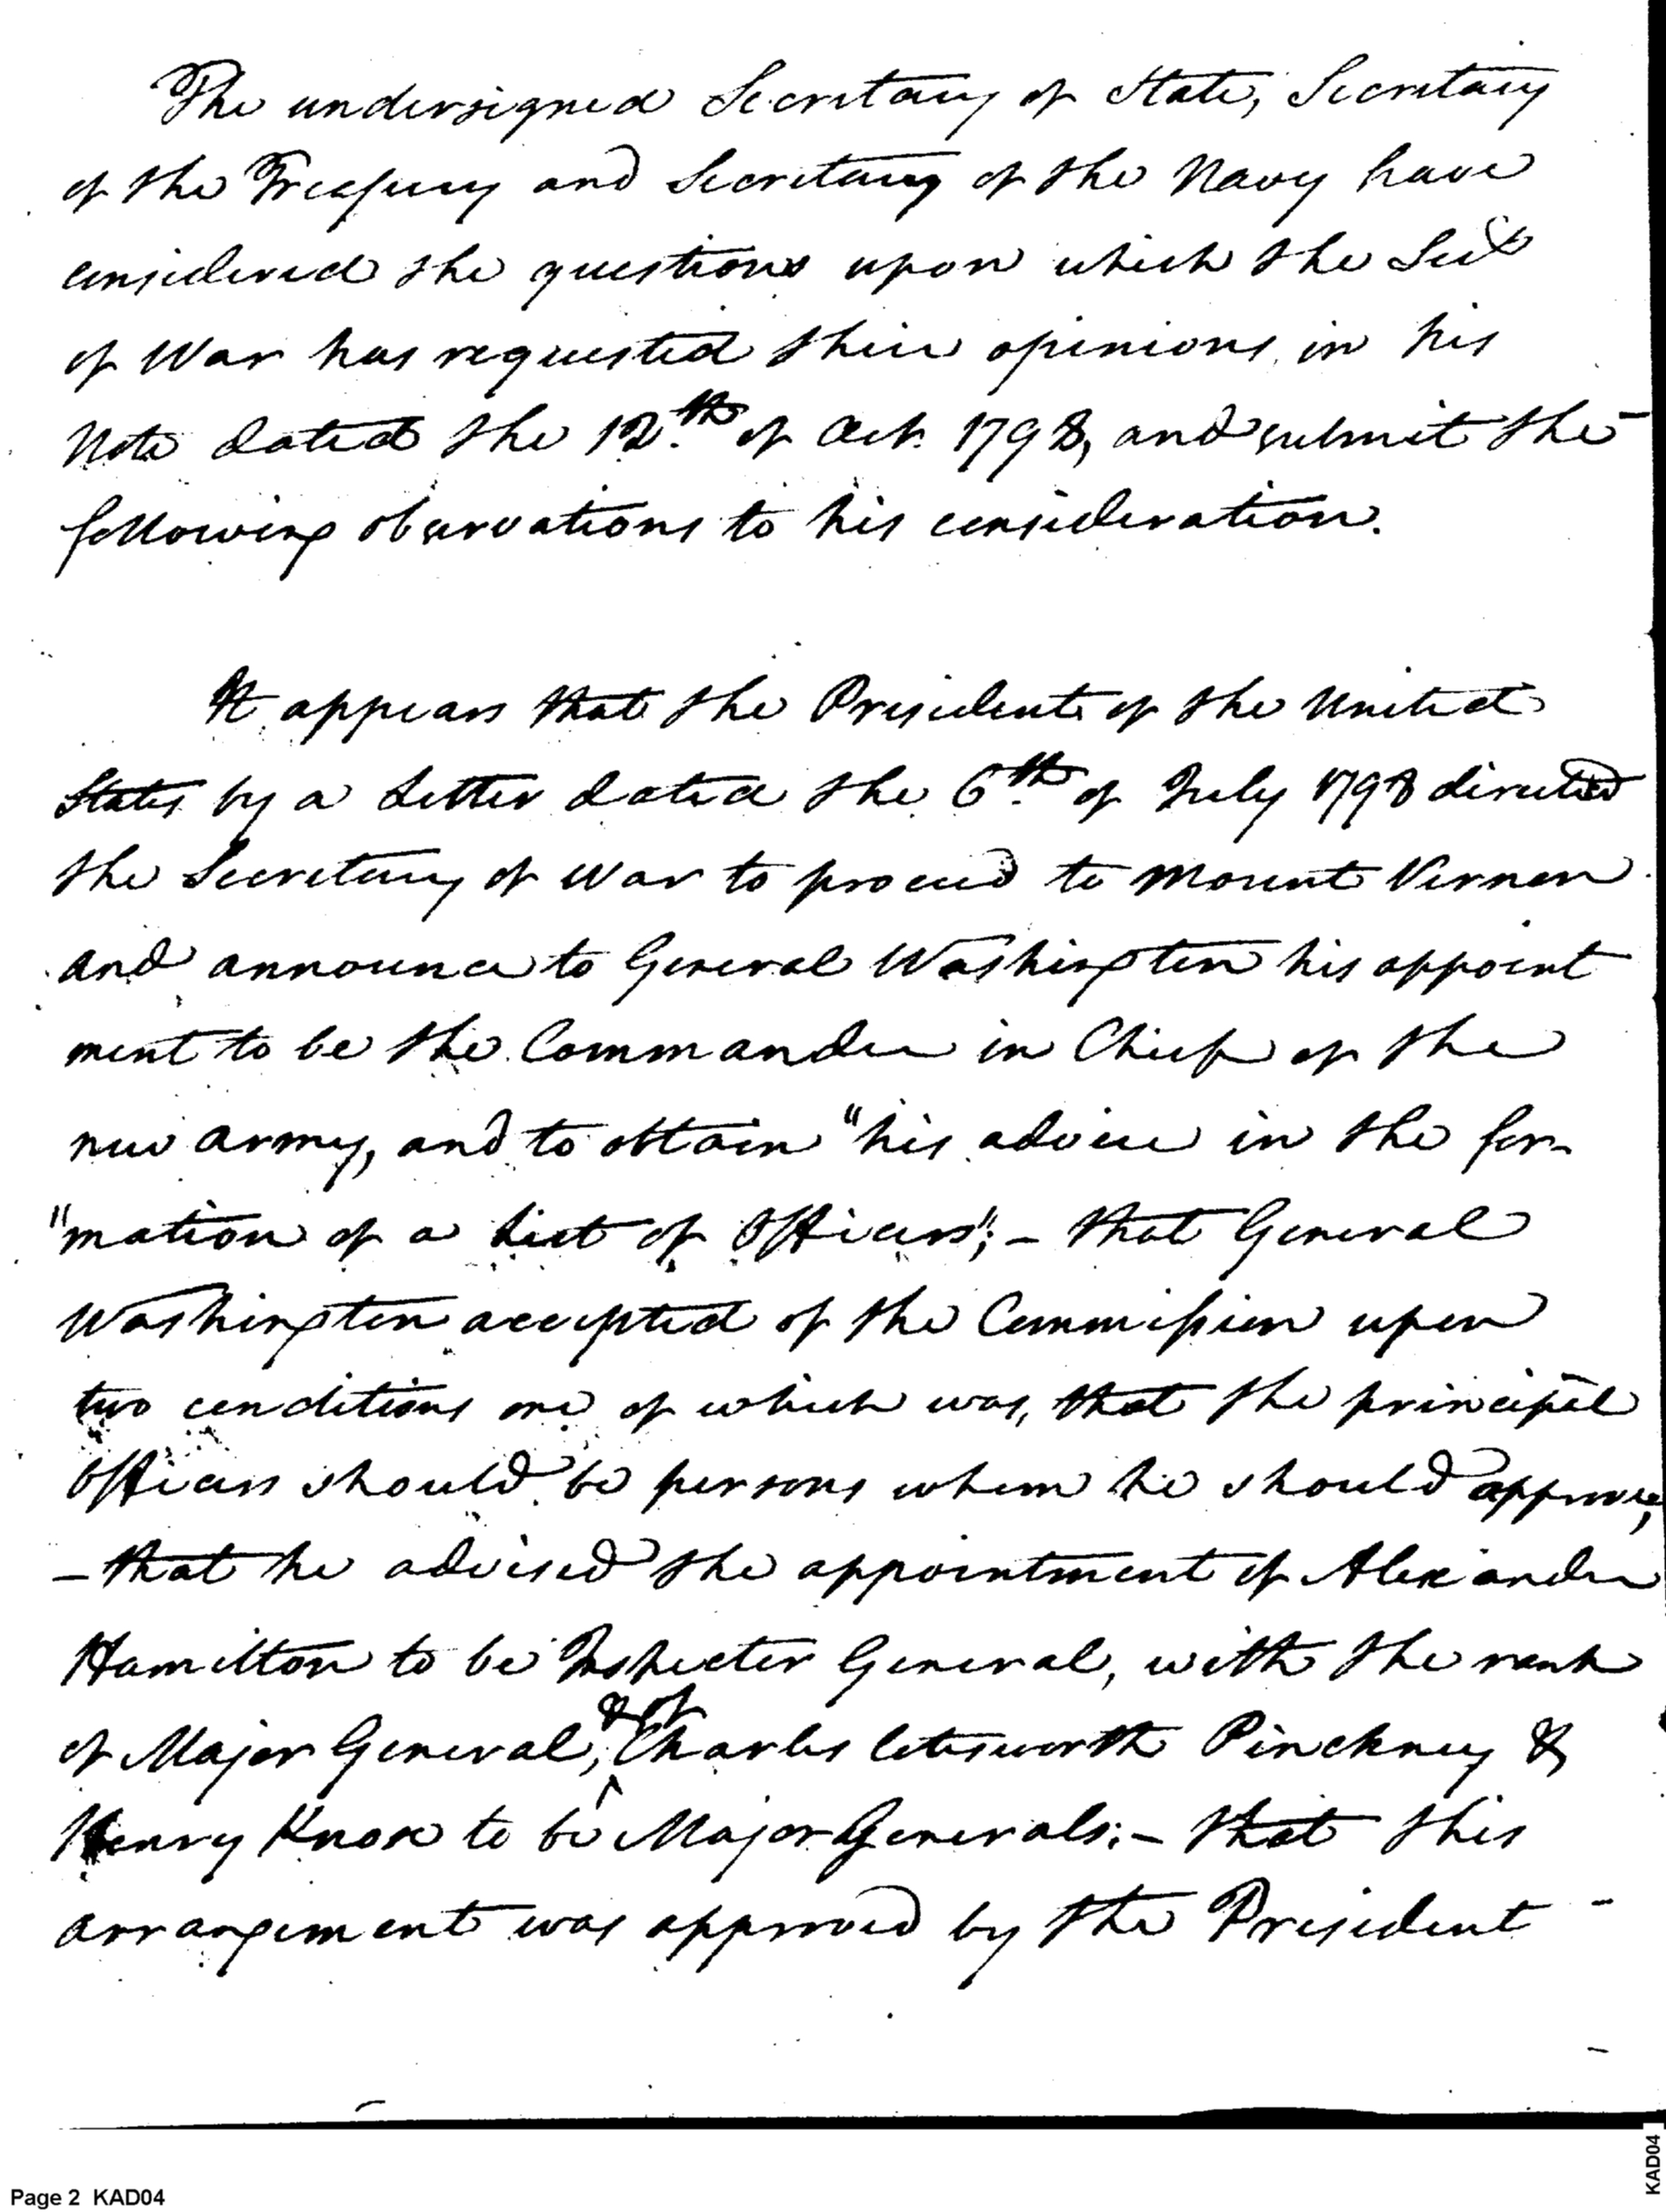 The undersigned Secretary of State, Secretary
of the Treasury and Secretary of the Navy have
considered the questions upon which the Sect
of War has requested their opinions in his
Note dated the 12.th of Oct. 1798, and submit the
following observations to his consideration.
It appears that the President of the United
States by a Letter dated the 6.th of July 1798 directed
the Secretary of War to proceed to Mount Vernon
and announce to General Washington his appoint
ment to be the Commander in Chief of the
new army, and to obtain "his advice in the for-
"mation of a list of Officers"; - that General
Washington accepted of the Commission upon
two conditions one of which was, that the principal
Officers should be persons whom he should approve;
- that he advised the appointment of Alexander
Hamilton to be Inspector General, with the rank
of Major General, & of Charles Cotesworth Pinckney &
Henry Knox to be Major Generals; - that this
arrangement was approved by the President
Page 2 KAD04
KAD04